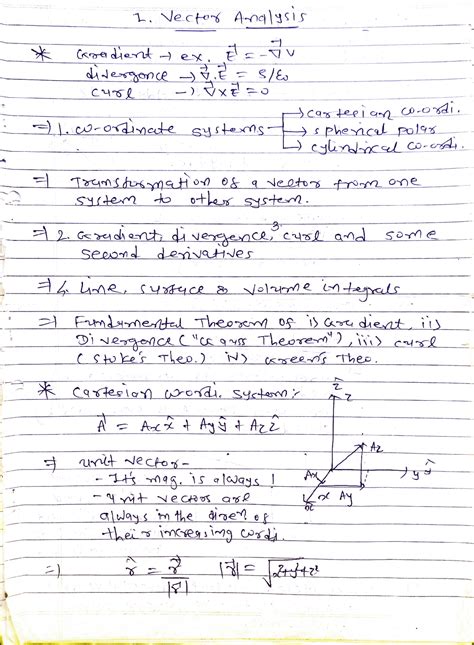 1. Vector Analysis
* Gradient → ex. E⃗ = -∇⃗V
divergence → ∇⃗.E⃗ = ρ/ε₀
curl → ∇⃗×E⃗ = 0
⇒ 1. co-ordinate systems → cartesian co-ordi.
→ spherical polar
→ cylindrical co-ordi.
⇒ Transformation of a vector from one
system to other system.
⇒ 2. Gradient, divergence, ³curl and some
second derivatives
⇒ 4. Line, surface & volume integrals
⇒ Fundamental Theorem of i) Gradient, ii)
Divergence ("Gauss Theorem"), iii) curl
(Stoke's Theo.) iv) Green's Theo.
* Cartesian coordi. system:
A⃗ = Axx̂ + Ayŷ + Azẑ
⇒ unit vector-
- It's mag. is always 1
- unit vectors are
always in the diren of
their increasing cordi.
ẑ
z
Az
Ax
y ŷ
x Ay
x̂
⇒ r̂ = r⃗/|r⃗| |r⃗| = √x²+y²+z²